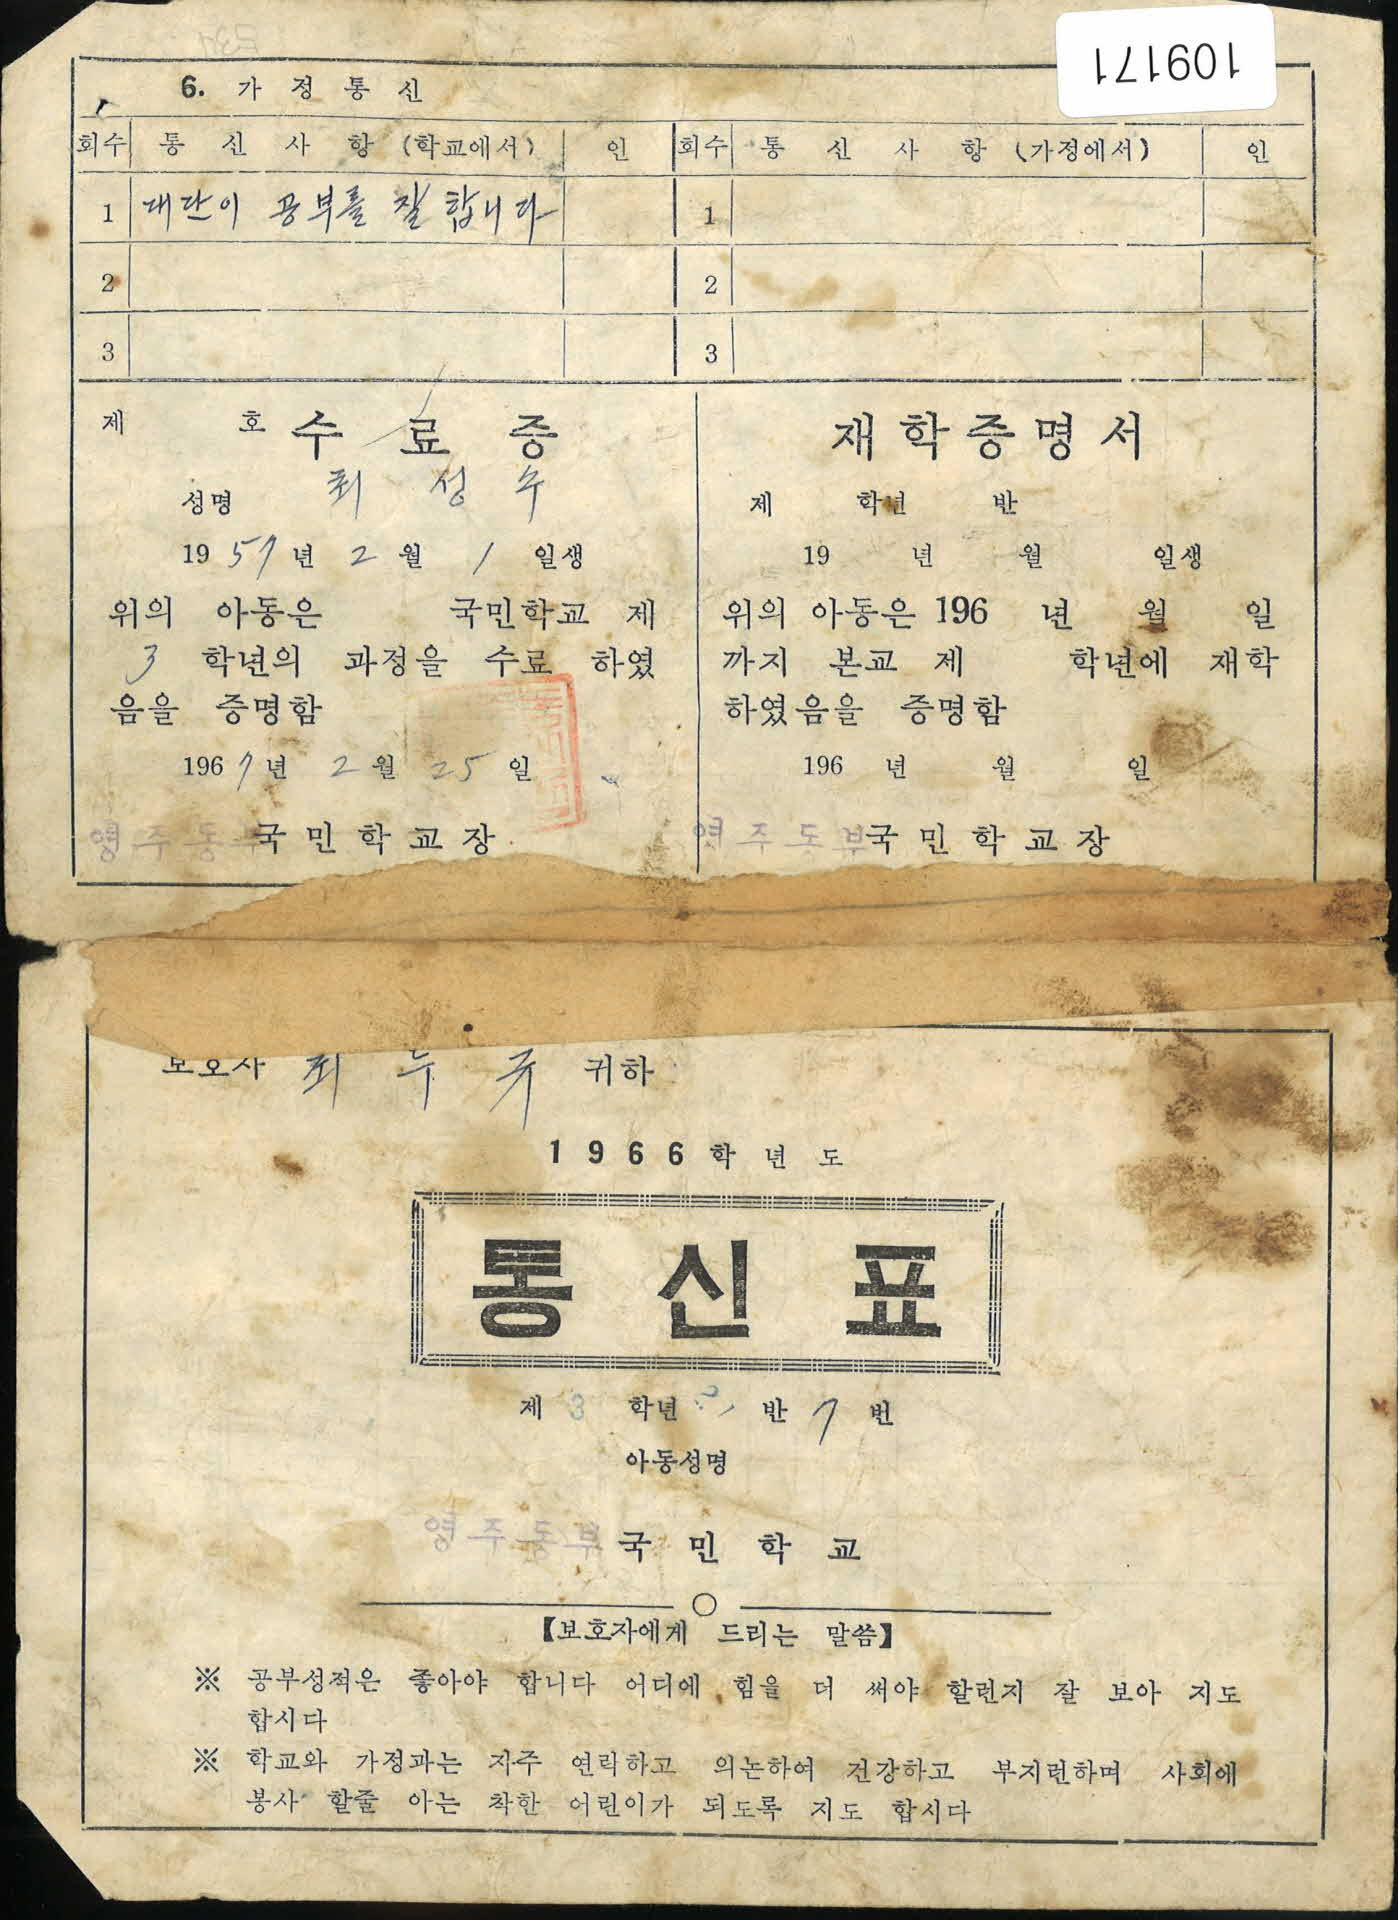 109171
6. 가 정 통 신
회수 통 신 사 항 (학교에서) 인 회수 통 신 사 항 (가정에서) 인
1 대단이 공부를 잘 합니다 1
2 2
3 3
제 호 수 료 증
성명 최 성 수
1957년 2월 1 일생
위의 아동은 국민학교 제
3 학년의 과정을 수료 하였
음을 증명함
1967년 2월 25일
영주동부국민학교장
재학증명서
제 학년 반
19 년 월 일생
위의 아동은 196 년 월 일
까지 본교 제 학년에 재학
하였음을 증명함
196 년 월 일
영주동부국민학교장
보호자 최 두 귀하
1966학년도
통 신 표
제 3 학년 반 7 번
아동성명
영주동부국민학교
【보호자에게 드리는 말씀】
※ 공부성적은 좋아야 합니다 어디에 힘을 더 써야 할런지 잘 보아 지도
합시다
※ 학교와 가정과는 자주 연락하고 의논하여 건강하고 부지런하며 사회에
봉사 할줄 아는 착한 어린이가 되도록 지도 합시다